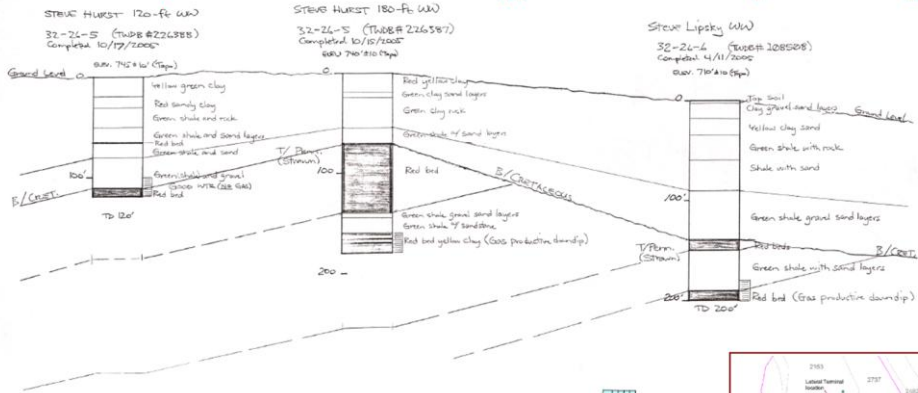 STEVE HURST 120-ft WW
32-26-5 (TWDB #226388)
Completed 10/17/2005
ELEV. 745±10' (Topo)
Ground Level
0
Yellow green clay
Red sandy clay
Green shale and rock
Green shale and sand layers
Red bed
Green shale and sand
100'
Green shale and gravel
Red bed
B/CRET.
TD 120'
STEVE HURST 180-ft WW
32-26-5 (TWDB #226387)
Completed 10/15/2005
ELEV. 740'±10 (Topo)
0
Red yellow clay
Green clay sand layers
Green clay rock
Green shale w/ sand layers
T/ Penn.
(Strawn)
100
Red bed
B/CRETACEOUS
Green shale gravel sand layers
Green shale w/ sandstone
Red bed yellow clay (Gas productive downdip)
200
Steve Lipsky WW
32-26-6 (TWDB# 208508)
Completed 4/11/2005
ELEV. 710'±10 (Topo)
0
Top Soil
Clay gravel sand layers
Ground Level
Yellow clay sand
Green shale with rock
Shale with sand
100'
Green shale gravel sand layers
T/Penn.
(Strawn)
Red beds
B/CRET.
Green shale with sand layers
200'
Red bed (Gas productive downdip)
TD 200'
2153
Lateral Terminal
location
2797